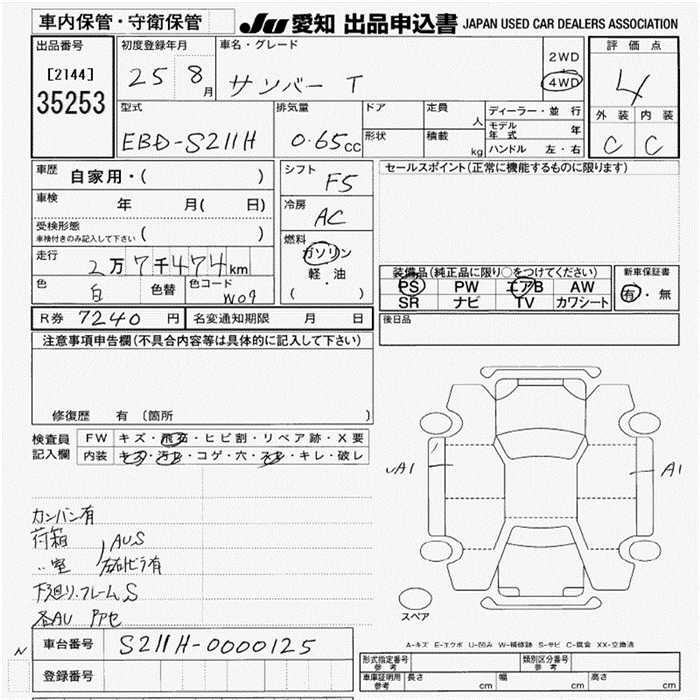 車内保管・守衛保管
JU 愛知 出品申込書 JAPAN USED CAR DEALERS ASSOCIATION
出品番号
[2144]
35253
初度登録年月
25 8月
車名・グレード
サンバー T
2WD
4WD
評価点
4
外装 内装
C C
型式
EBD-S211H
排気量
0.65cc
ドア
形状
定員 人
積載 kg
ディーラー・並行
モデル年式 年
ハンドル 左・右
車歴
自家用・( )
車検
年 月( 日)
受検形態
車検付きのみ記入して下さい ( )
走行
2万7千474km
色
白
色替
色コード
W09
シフト
F5
冷房
AC
燃料
ガソリン
軽・油
( )
セールスポイント(正常に機能するものに限ります)
装備品(純正品に限り○をつけてください)
PS PW エアB AW
SR ナビ TV カワシート
新車保証書
有・無
R券 7240円 名変通知期限 月 日
後日品
注意事項申告欄(不具合内容等は具体的に記入して下さい)
修復歴 有〔箇所 〕
検査員記入欄
FW キズ・飛石・ヒビ割・リペア跡・X要
内装 キズ・汚れ・コゲ・穴・スレ・キレ・破レ
カンバン有
荷箱
〃室
AUS
左右ビラ有
下廻り.フレームS
各AU アセ
A1
A1
スペア
A-キズ E-エクボ U-凹み W-補修跡 S-サビ C-腐食 XX-交換済
N
車台番号 S211H-0000125
登録番号
形式指定番号 参考
類別区分番号 参考
車庫証明用 参考 長さ cm 幅 cm 高さ cm